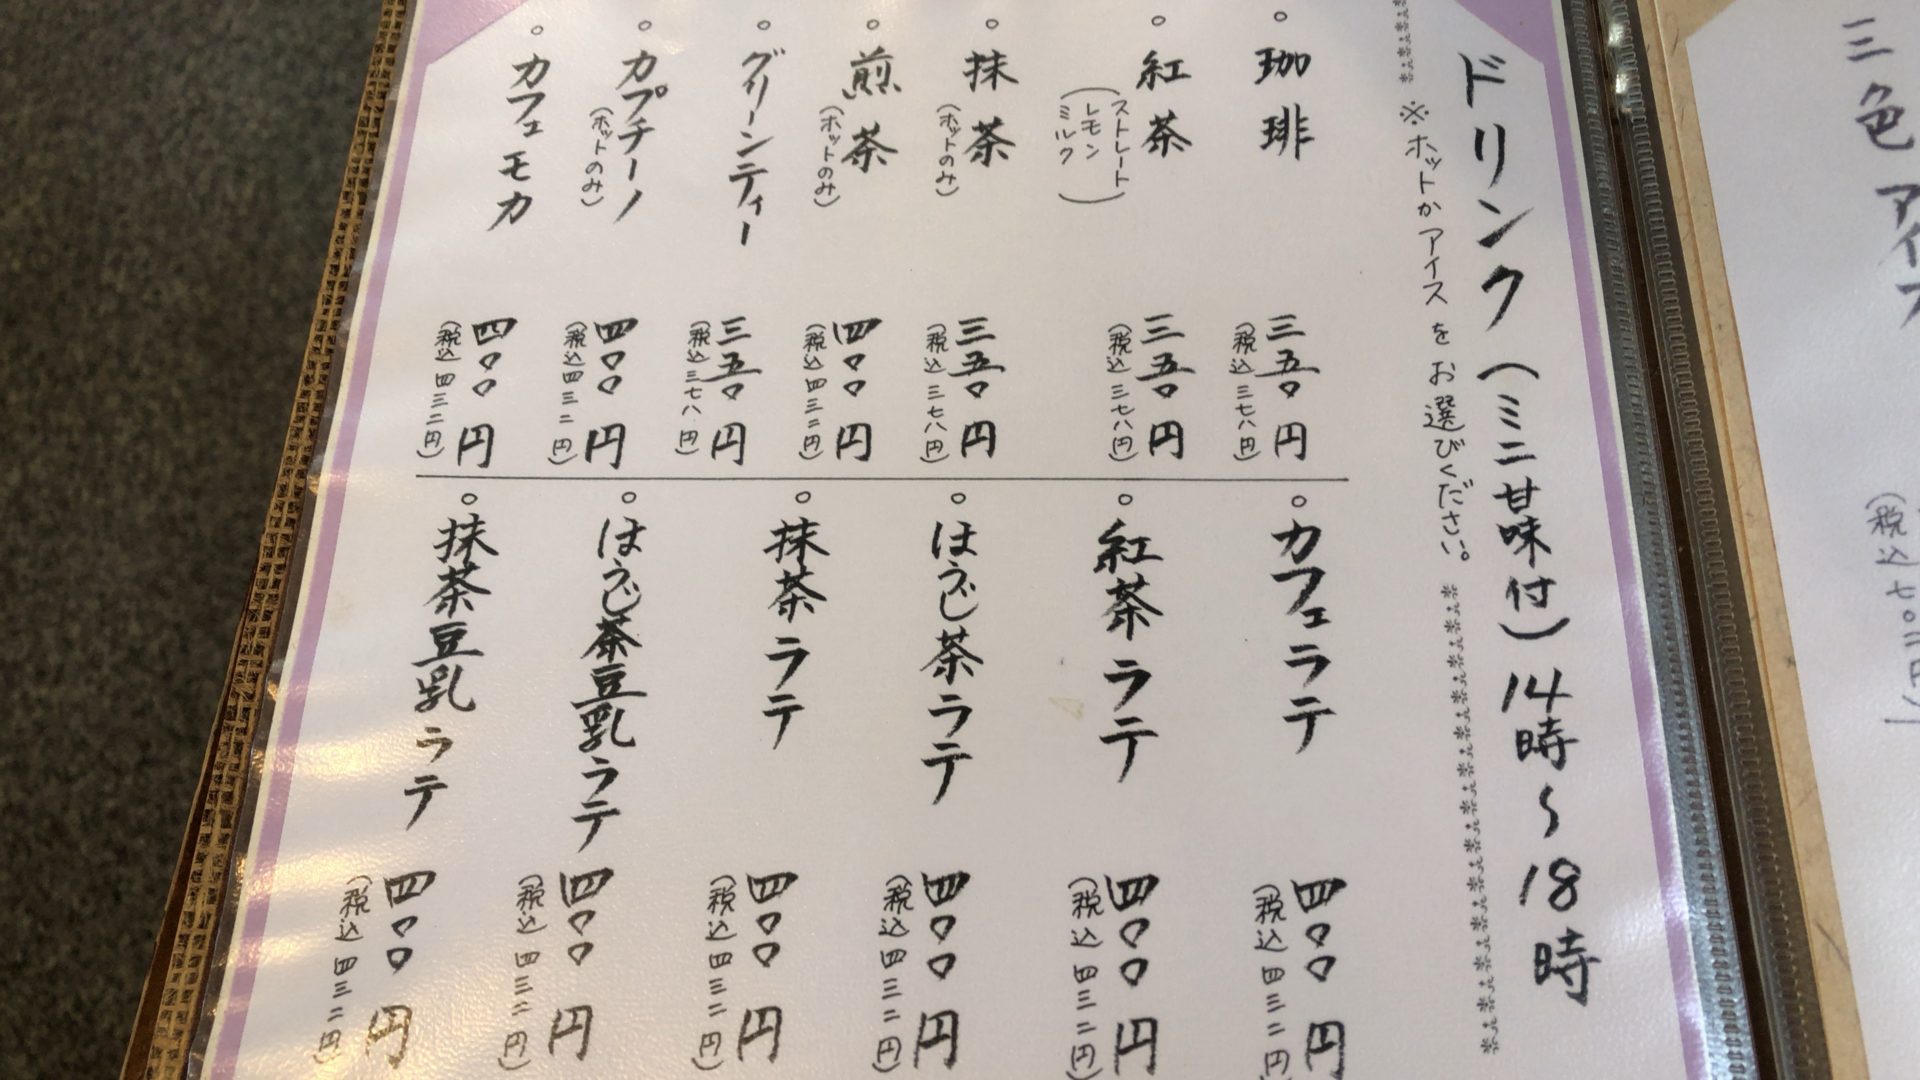 ドリンク(ミニ甘味付)14時〜18時
※ホットかアイスをお選びください。
。珈琲 三五〇円
(税込三七八円)
。紅茶 三五〇円
(ストレート
レモン
ミルク)
(税込三七八円)
。抹茶 三五〇円
(ホットのみ) (税込三七八円)
。煎茶 四〇〇円
(ホットのみ) (税込四三二円)
。グリーンティー 三五〇円
(税込三七八円)
。カプチーノ 四〇〇円
(ホットのみ) (税込四三二円)
。カフェモカ 四〇〇円
(税込四三二円)
。カフェラテ 四〇〇円
(税込四三二円)
。紅茶ラテ 四〇〇円
(税込四三二円)
。ほうじ茶ラテ 四〇〇円
(税込四三二円)
。抹茶ラテ 四〇〇円
(税込四三二円)
。ほうじ茶豆乳ラテ 四〇〇円
(税込四三二円)
。抹茶豆乳ラテ 四〇〇円
(税込四三二円)
三色アイス
(税込七〇二円)